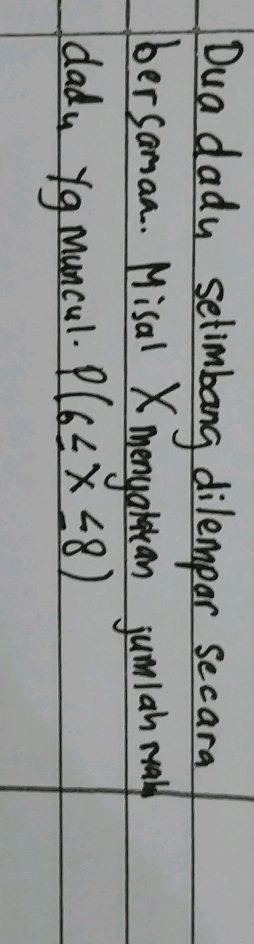 Dua dadu setimbang dilempar secara
bersamaan. Misal X menyatakan jumlah mata
dadu yg muncul. P(6 ≤ X ≤ 8)